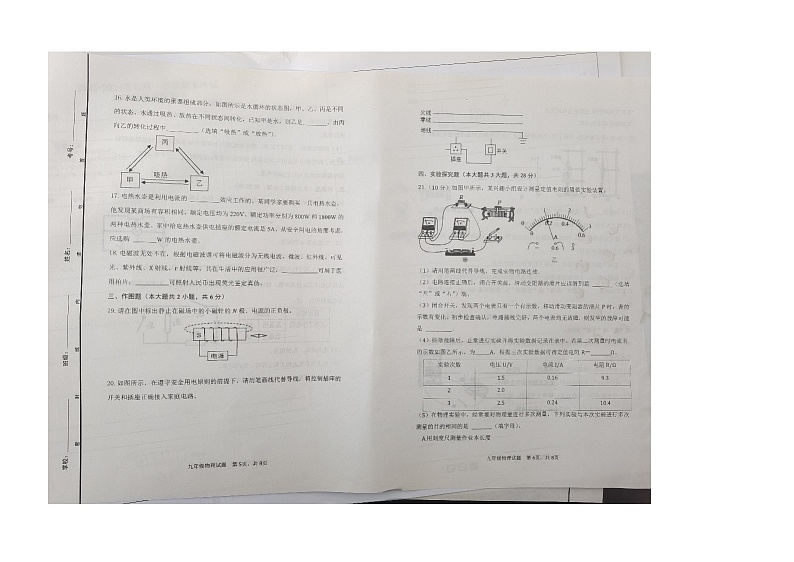 16. 水是人类环境的重要组成部分，如图所示是水循环的状态图，甲、乙、丙是不同
的状态，水通过吸热、放热在不同状态间转化，已知甲是水，则乙是______，由丙
向乙的转化过程中______（选填“吸热”或“放热”）。
丙
吸热
甲
乙
17. 电热水壶是利用电流的______效应工作的。某同学家要购买一只电热水壶，
他发现某商场有容积相同、额定电压均为 220V、额定功率分别为 800W 和 1800W 的
两种电热水壶，家中给电热水壶供电插座的额定电流是 5A，从安全用电的角度考虑，
应选购______W 的电热水壶。
18. 电磁波无处不在，根据电磁波谱可将电磁波分为无线电波、微波、红外线、可见
光、紫外线、X 射线、γ 射线等，其在生活中的应用很广泛，______可用于医
用拍片，______可照射人民币出现荧光鉴定真伪。
三、作图题（本大题共 2 小题，共 6 分）
19. 请在图中标出静止在磁场中的小磁针的 N 极、电源的正负极。
S
电源
20. 如图所示，在遵守安全用电原则的前提下，请用笔画线代替导线，将控制插座的
开关和插座正确接入家庭电路。
九年级物理试题 第 5 页，共 8 页
学校：
班级：
姓名：
考号：
火线
零线
地线
插座
开关
四、实验探究题（本大题共 3 大题，共 28 分）
21.（10 分）如图甲所示，某兴趣小组设计测量定值电阻的阻值实验装置。
甲
乙
（1）请用笔画线代替导线，完成实物电路连接。
（2）电路连接正确后，闭合开关前，滑动变阻器的滑片应该调到最______（选填
“左”或“右”）端。
（3）闭合开关，发现两个电表只有一个有示数，移动滑动变阻器的滑片 P 时，表的
示数有变化。初步检查确认：电路接线完好，两个电表均无故障，则发生的故障可能
是______。
（4）排除故障后，正常进行实验并将实验数据记录在表中，在第二次测量时电流表
的示数如图乙所示，为______A，根据三次实验数据可得定值电阻 R=______Ω。
实验次数 电压 U/V 电流 I/A 电阻 R/Ω
1 1.5 0.16 9.3
2 2.0
3 2.5 0.24 10.4
（5）在物理实验中，经常要对物理量进行多次测量，下列实验与本次实验进行多次
测量的目的相同的是______（填字母）。
A.用刻度尺测量作业本长度
九年级物理试题 第 6 页，共 8 页